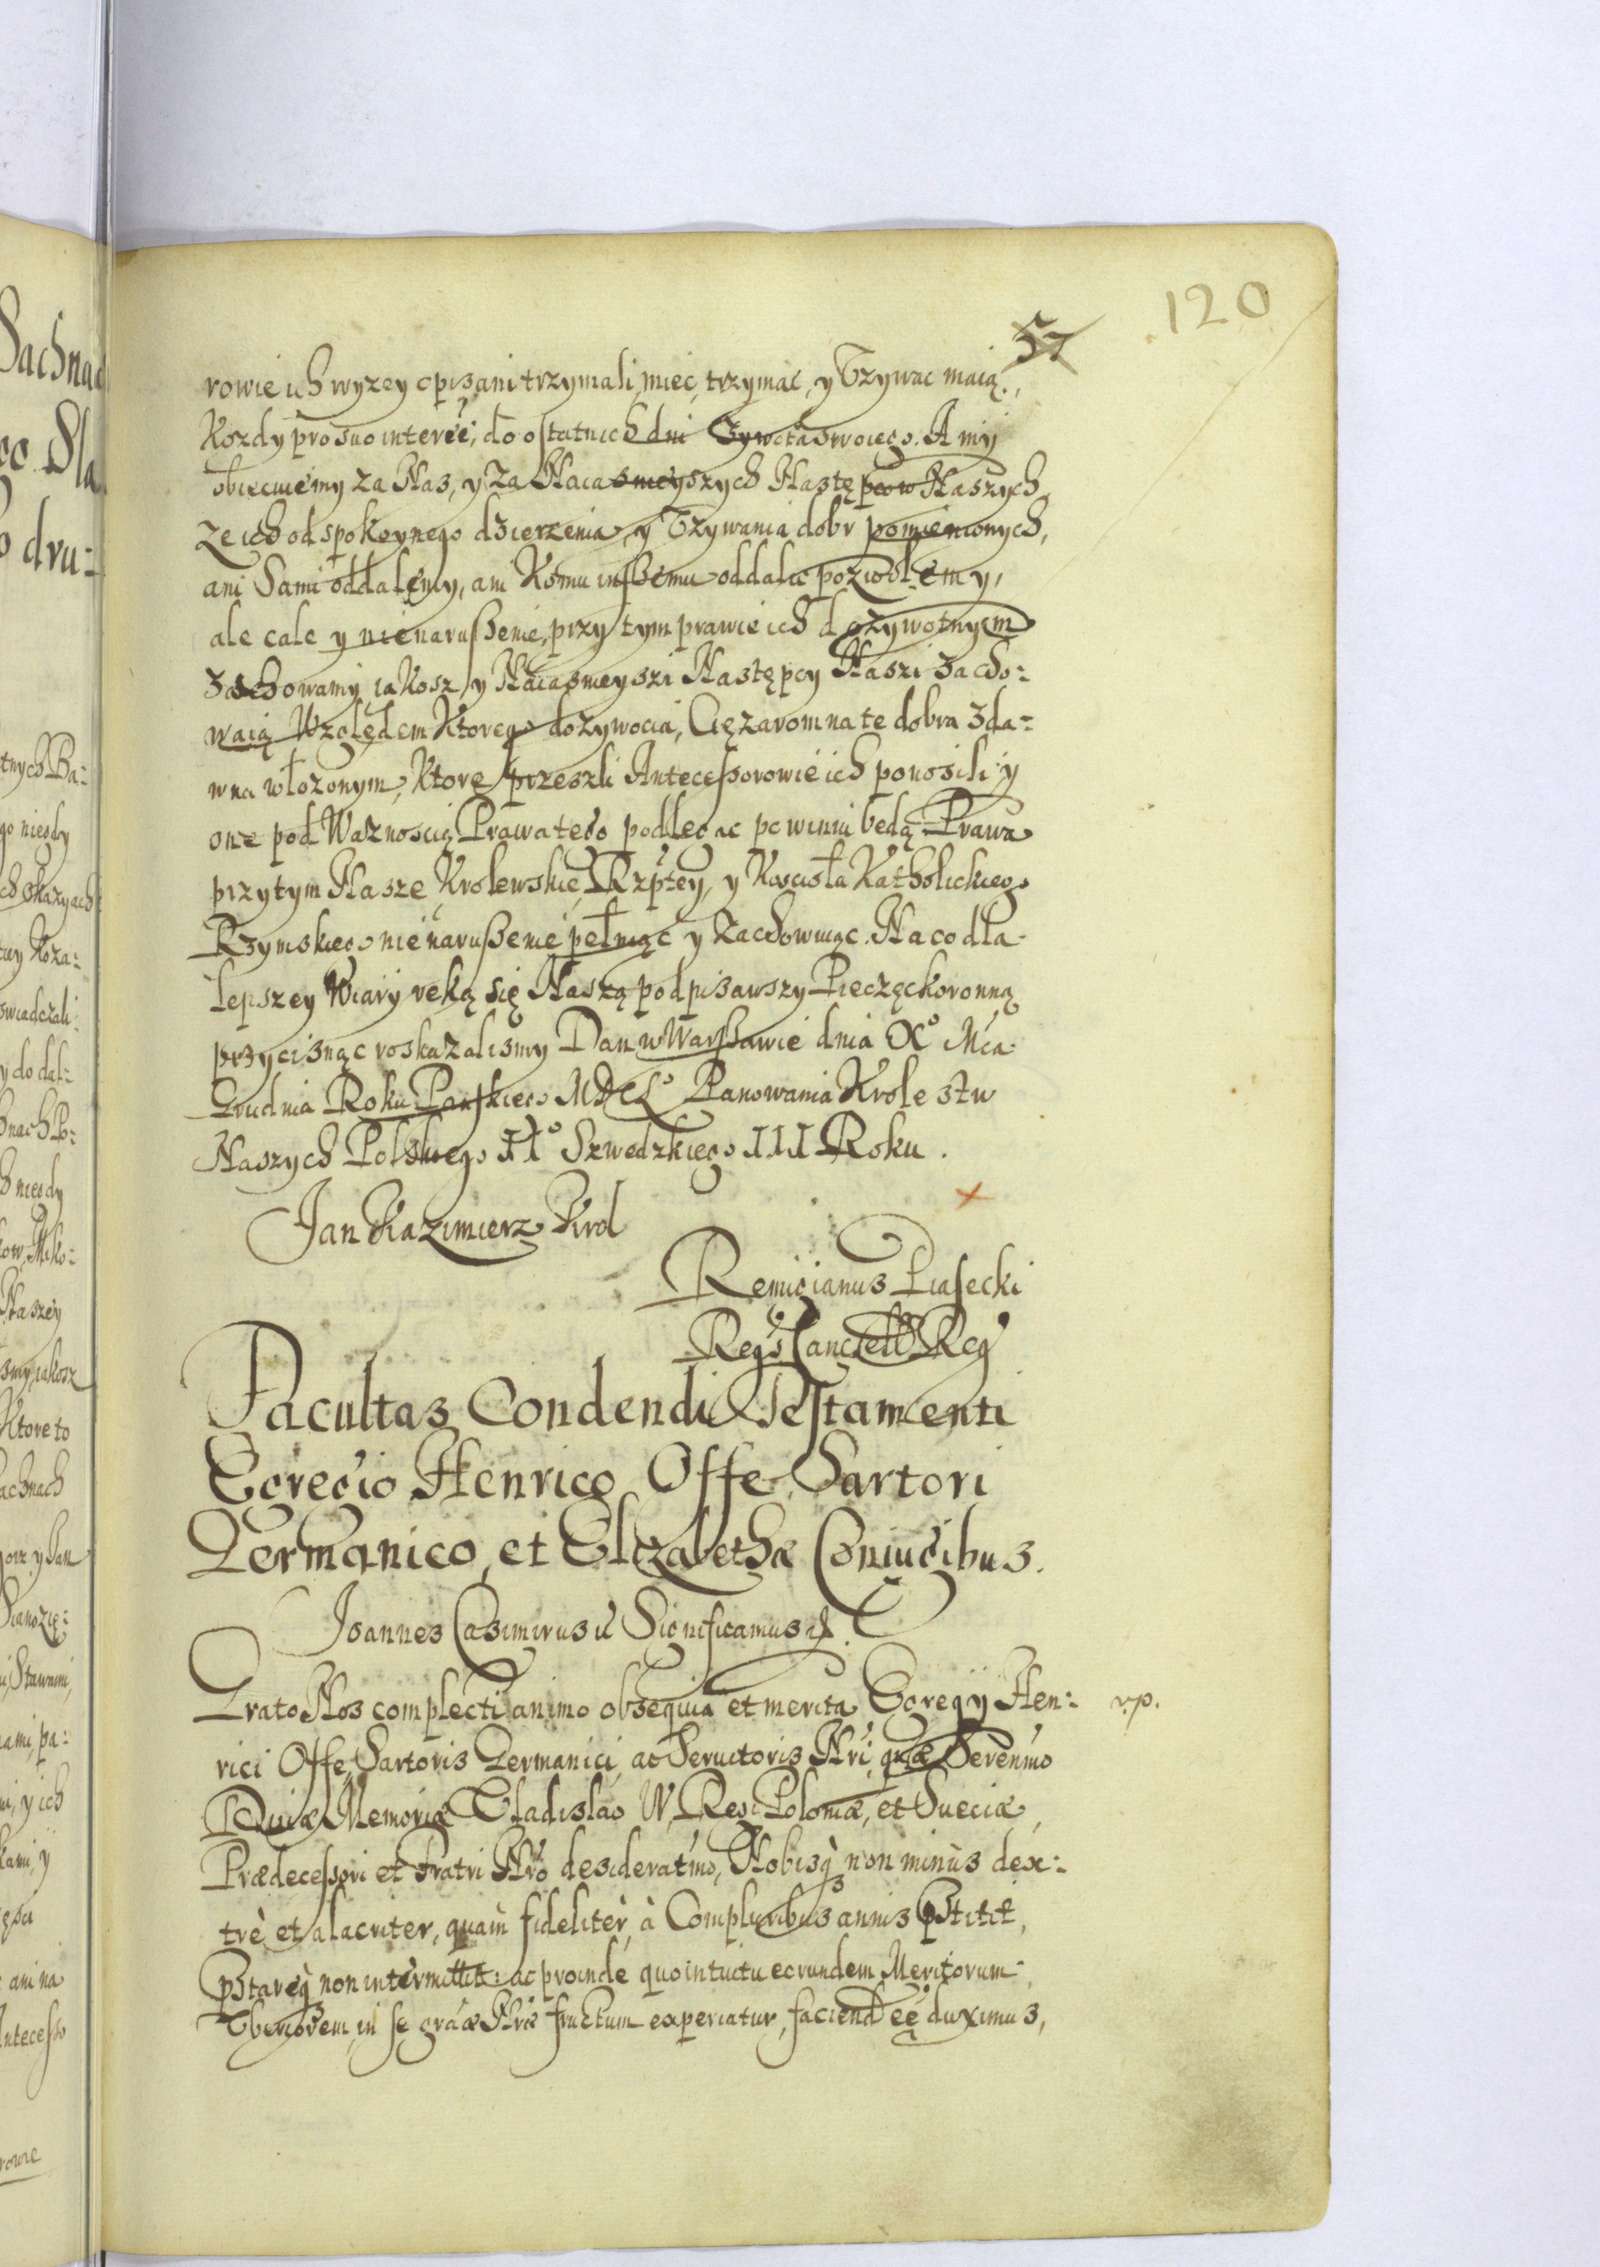 120
57
rowie ich wyzey opisani trzymali, miec, trzymac, y Vzywac maią.,
Kozdy pro suo interēē, do ostatnich dni Zywota swoiego. A my
obiecuiemy za Nas, y za Naiasnieyszych Następcow Naszych,
ze ich od spokoynego dzierzenia y Vzywania dobr pomienionych,
ani Sami oddalemy, ani Komu inszemu oddalic pozwolemy,
ale cale y nienaruszenie, przy tym prawie ich dozywotnym
zachowamy, iakosz y Naiasnieyszi Następcy Naszi zacho:
waią Względem Ktorego dozywocia, Cięzarom na te dobra zda:
wna włozonym, Ktore przeszli Antecessorowie ich ponosili y
one pod Waznoscią Prawa tego podlegac powinni będą Prawa
przytym Nasze Krolewskie, Rzptey, y Koscioła Katholickiego
Rzymskiego nienaruszenie pełniąc y zachowuiąc. Na co dla
lepszey Wiary ręką się Naszą podpisawszy Pieczęc koronną
przycisnąc roskazalismy Dan w Warszawie dnia X° Mca
Grudnia Roku Pańskiego MDCL° Panowania Krolestw
Naszych Polskiego II° Szwedzkiego III Roku.
Jan Kazimierz Krol
Remigianus Piasecki
Regs Cancell Reg
Facultas Condendi Testamenti
Egregio Henrico Offe Sartori
Germanico, et Elizabethæ Coniugibus.
Joannes Casimirus Significamus
Grato Nos complecti animo obsequia et merita Egregÿ Hen:
rici Offe Sartoris Germanici, ac Seruitoris Nri, quæ Serenmo
Diuæ Memoriæ Vladislao IV, Regi Poloniæ, et Sueciæ,
Prædecessori et Fratri Nro desideratmo, Nobisq non minùs dex:
trè et alacriter, quàm fideliter, à Compluribus annis pstitit,
pstareq non intermittit: ac proinde quo intuitu eorundem Meritorum
Vberiorem, in se grãæ Nræ fructum experiatur, faciend eē duximus,